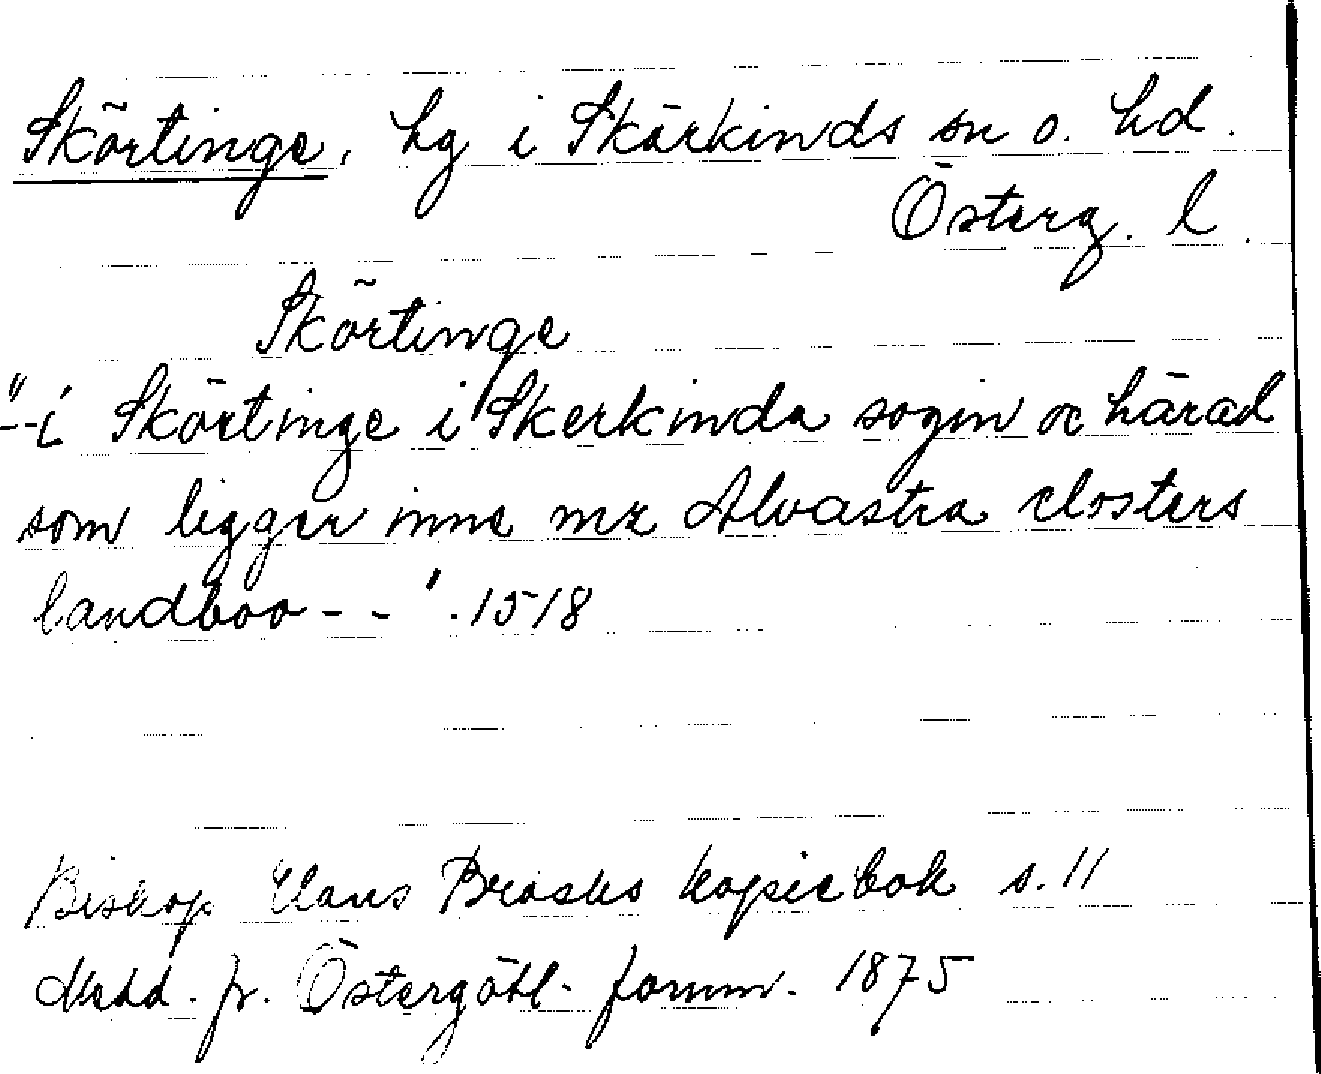 Skörtinge, hg i Skärkinds sn o. hd.
Österg. l.
Skörtinge
"--i Skörtinge i Skerkinda sogin oc härad
som ligger inne mz Alvastra closters
landboo - - ". 1518
Biskop Hans Brasks kopiebok s. 11
Medd. fr. Östergötl. fornm. 1875